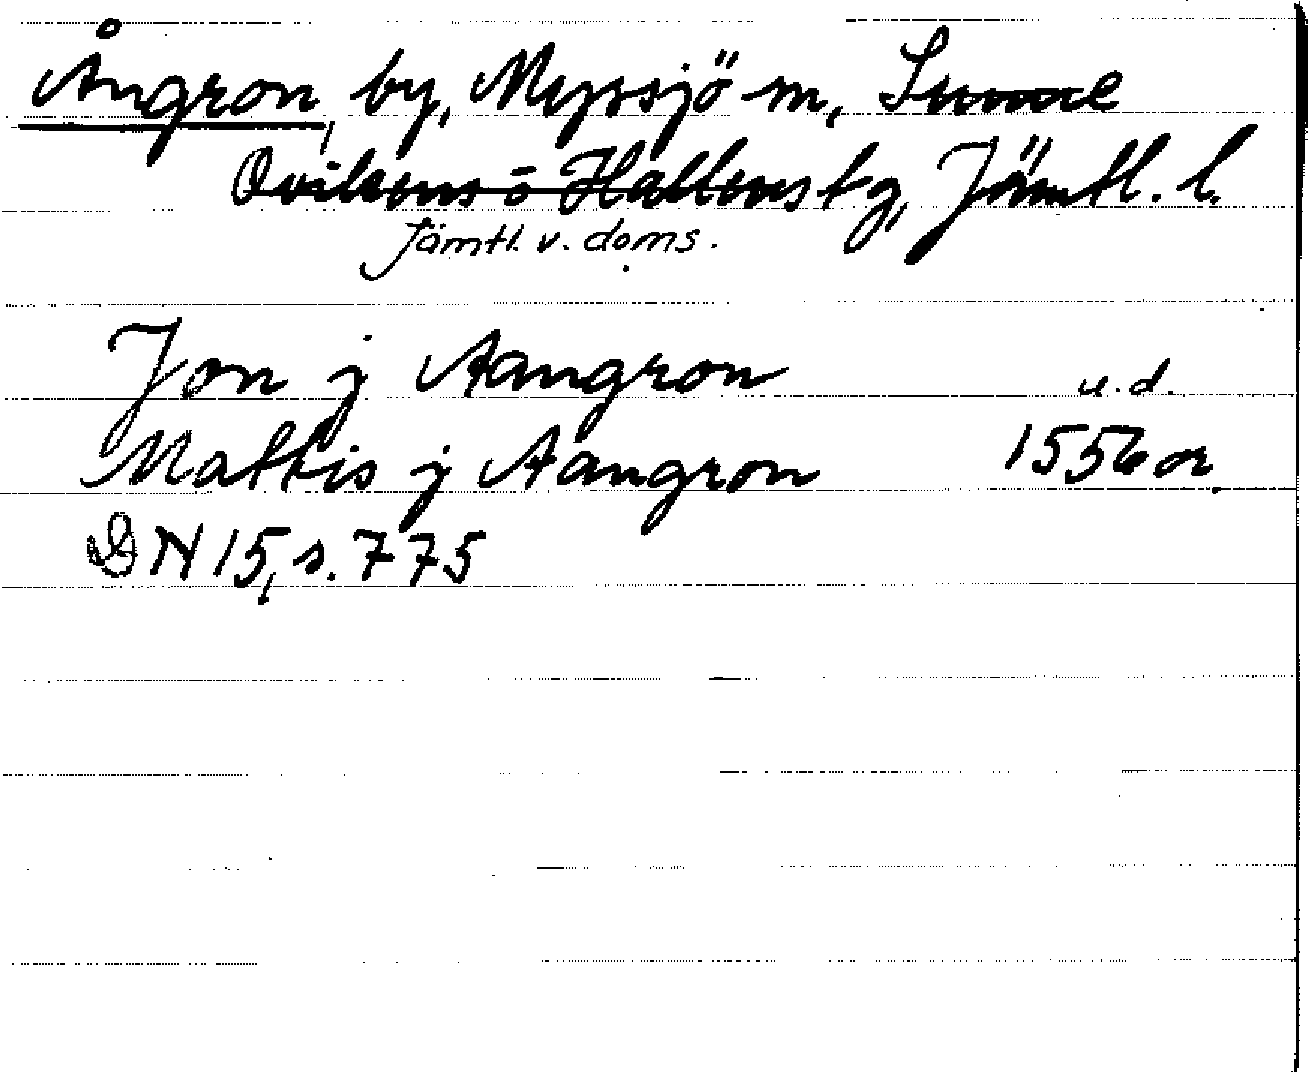 Ångron, by, Myssjö sn, Sunne
Ovikens o Hallens tg, Jämtl. l.
Jämtl. v. doms.
Jon j Aangron u.d.
Mattis j Aangron 1556 or.
DN 15, s. 775